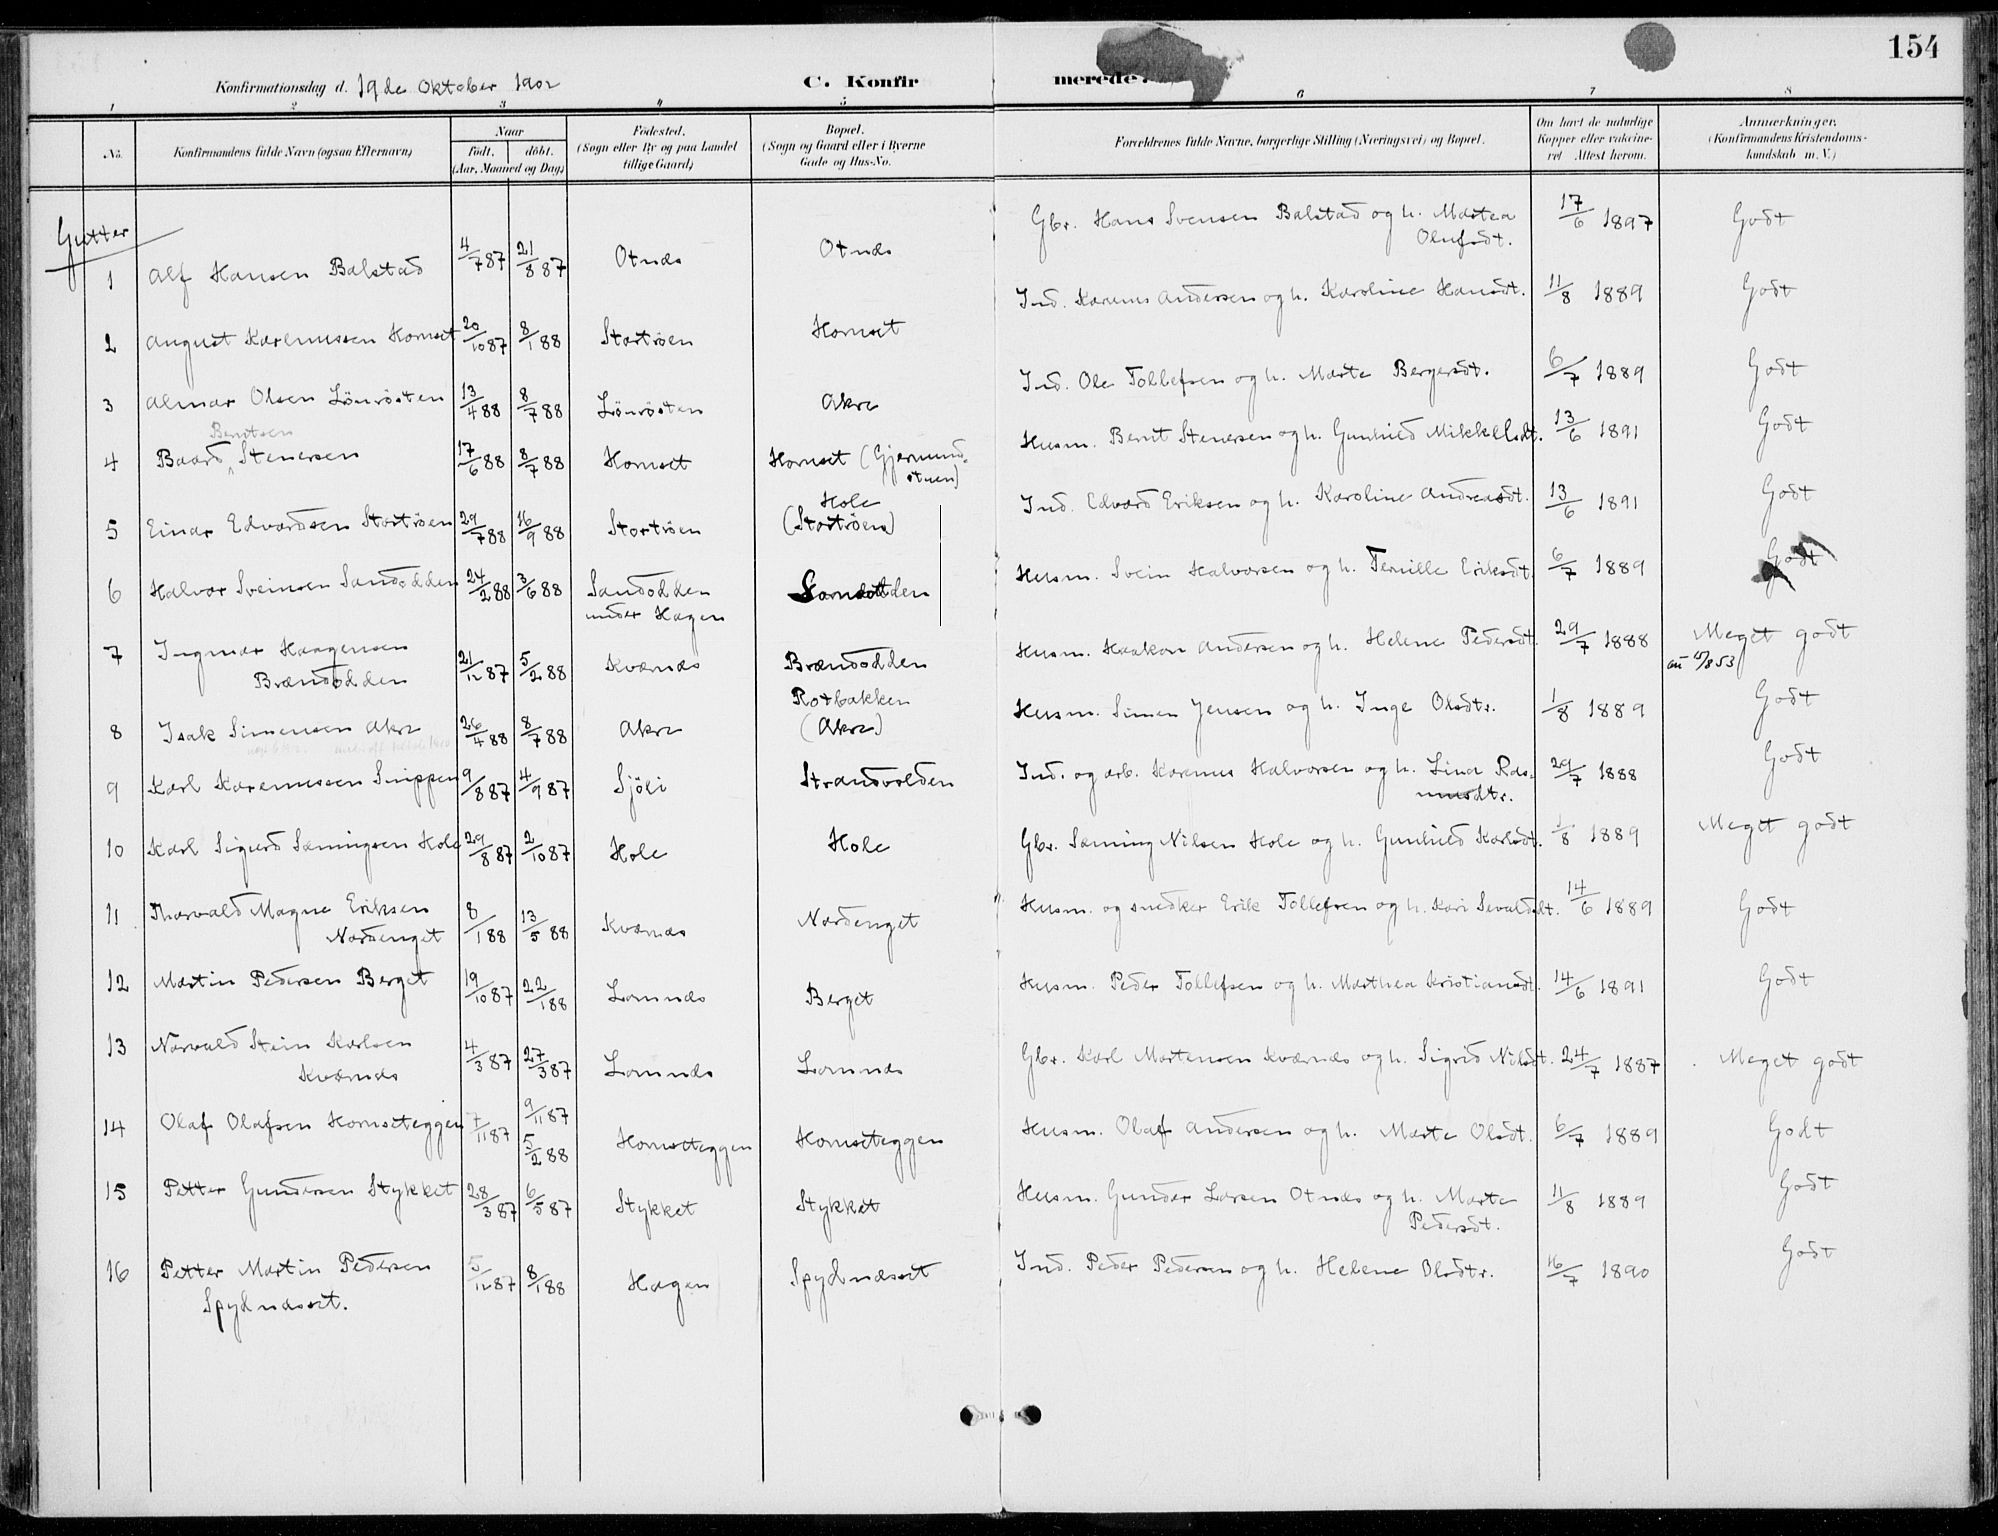 154
Konfirmationsdag d. 19de Oktober 1902
C. Konfirmerede.
1 2 3 4 5 6 7 8
No. Konfirmandens fulde Navn (ogsaa Efternavn) Naar födt. döbt. (Aar, Maaned og Dag) Födested. (Sogn eller By og paa Landet tillige Gaard) Bopæl. (Sogn og Gaard eller i Byerne Gade og Hus-No. Forældrenes fulde Navne, borgerlige Stilling (Næringsvei) og Bopæl. Om havt de naturlige Kopper eller vakcineret Attest herom. Anmærkninger. (Konfirmandens Kristendomskundskab m. V.)
Gutter
1 Alf Hansen Balstad 4/7 87 21/8 87 Otnæs Otnæs Gbr. Hans Svensen Balstad og h. Martea Olufsdt. 17/6 1897 Godt
2 August Karenussen Hornset 20/10 87 8/1 88 Stortröen Hornset Ind. Karenus Andersen og h. Karoline Hansdt. 11/8 1889 Godt
3 Almar Olsen Lönrösten 13/4 88 8/7 88 Lönrösten Akre Ind. Ole Tollefsen og h. Marte Bergersdt. 6/7 1889 Godt
4 Baard Berntsen Stenersen 17/6 88 8/7 88 Hornset Hornset (Gjermundstuen) Husm. Bernt Stenersen og h. Gunhild Mikkelsdt. 13/6 1891 Godt
5 Einar Edvardsen Stortröen 29/7 88 16/9 88 Stortröen Hole (Stortröen) Ind. Edvard Eriksen og h. Karoline Andreasdt. 13/6 1891 Godt
6 Halvor Sveinsen Sandodden 24/2 88 3/6 88 Sandodden under Hagen Sandodden Husm. Svein Halvorsen og h. Pernille Eriksdt. 6/7 1889 Godt
7 Ingmar Haagensen Brændodden 21/12 87 5/2 88 Kværnæs Brændodden Husm. Haakon Andersen og h. Helene Pedersdt. 29/7 1888 Meget godt
8 Isak Simensen Akre 26/4 88 8/7 88 Akre Rotbakken (Akre) Husm. Simen Jensen og h. Inge Olsdtr. 1/8 1889 Godt
9 Karl Karenussen Snippen 9/8 87 4/9 87 Sjöli Strandvolden Ind. og arb. Karenus Halvorsen og h. Lina Rasmusdtr. 29/7 1888 Godt
10 Karl Sigurd Sæmingsen Hole 29/8 87 2/10 87 Hole Hole Gbr. Sæming Nilsen Hole og h. Gunhild Karlsdt. 1/8 1889 Meget godt
11 Thorvald Magne Eriksen Nordenget 8/1 88 13/5 88 Kværnæs Nordenget Husm. og snedker Erik Tollefsen og h. Kari Sevaldsdt. 14/6 1889 Godt
12 Martin Pedersen Berget 19/10 87 22/1 88 Lomnæs Berget Husm. Peder Tollefsen og h. Marthea Kristiansdt. 14/6 1891 Godt
13 Narvald Stein Karlsen Kværnæs 4/3 87 27/3 87 Lomnæs Lomnæs Gbr. Karl Mortensen Kværnæs og h. Sigrid Nilsdt. 24/7 1887 Meget godt
14 Olaf Olafsen Hornseteggen 7/11 87 9/11 87 5/2 88 Hornseteggen Hornseteggen Husm. Olaf Andersen og h. Marte Olsdt. 6/7 1889 Godt
15 Petter Gundersen Stykket 28/3 87 6/5 87 Stykket Stykket Husm. Gunder Larsen Otnæs og h. Marte Pedersdt. 11/8 1889 Godt
16 Petter Martin Pedersen Spydnæsset. 5/12 87 8/1 88 Hagen Spydnæsset Ind. Peder Pedersen og h. Helene Olsdtr. 16/7 1890 Godt